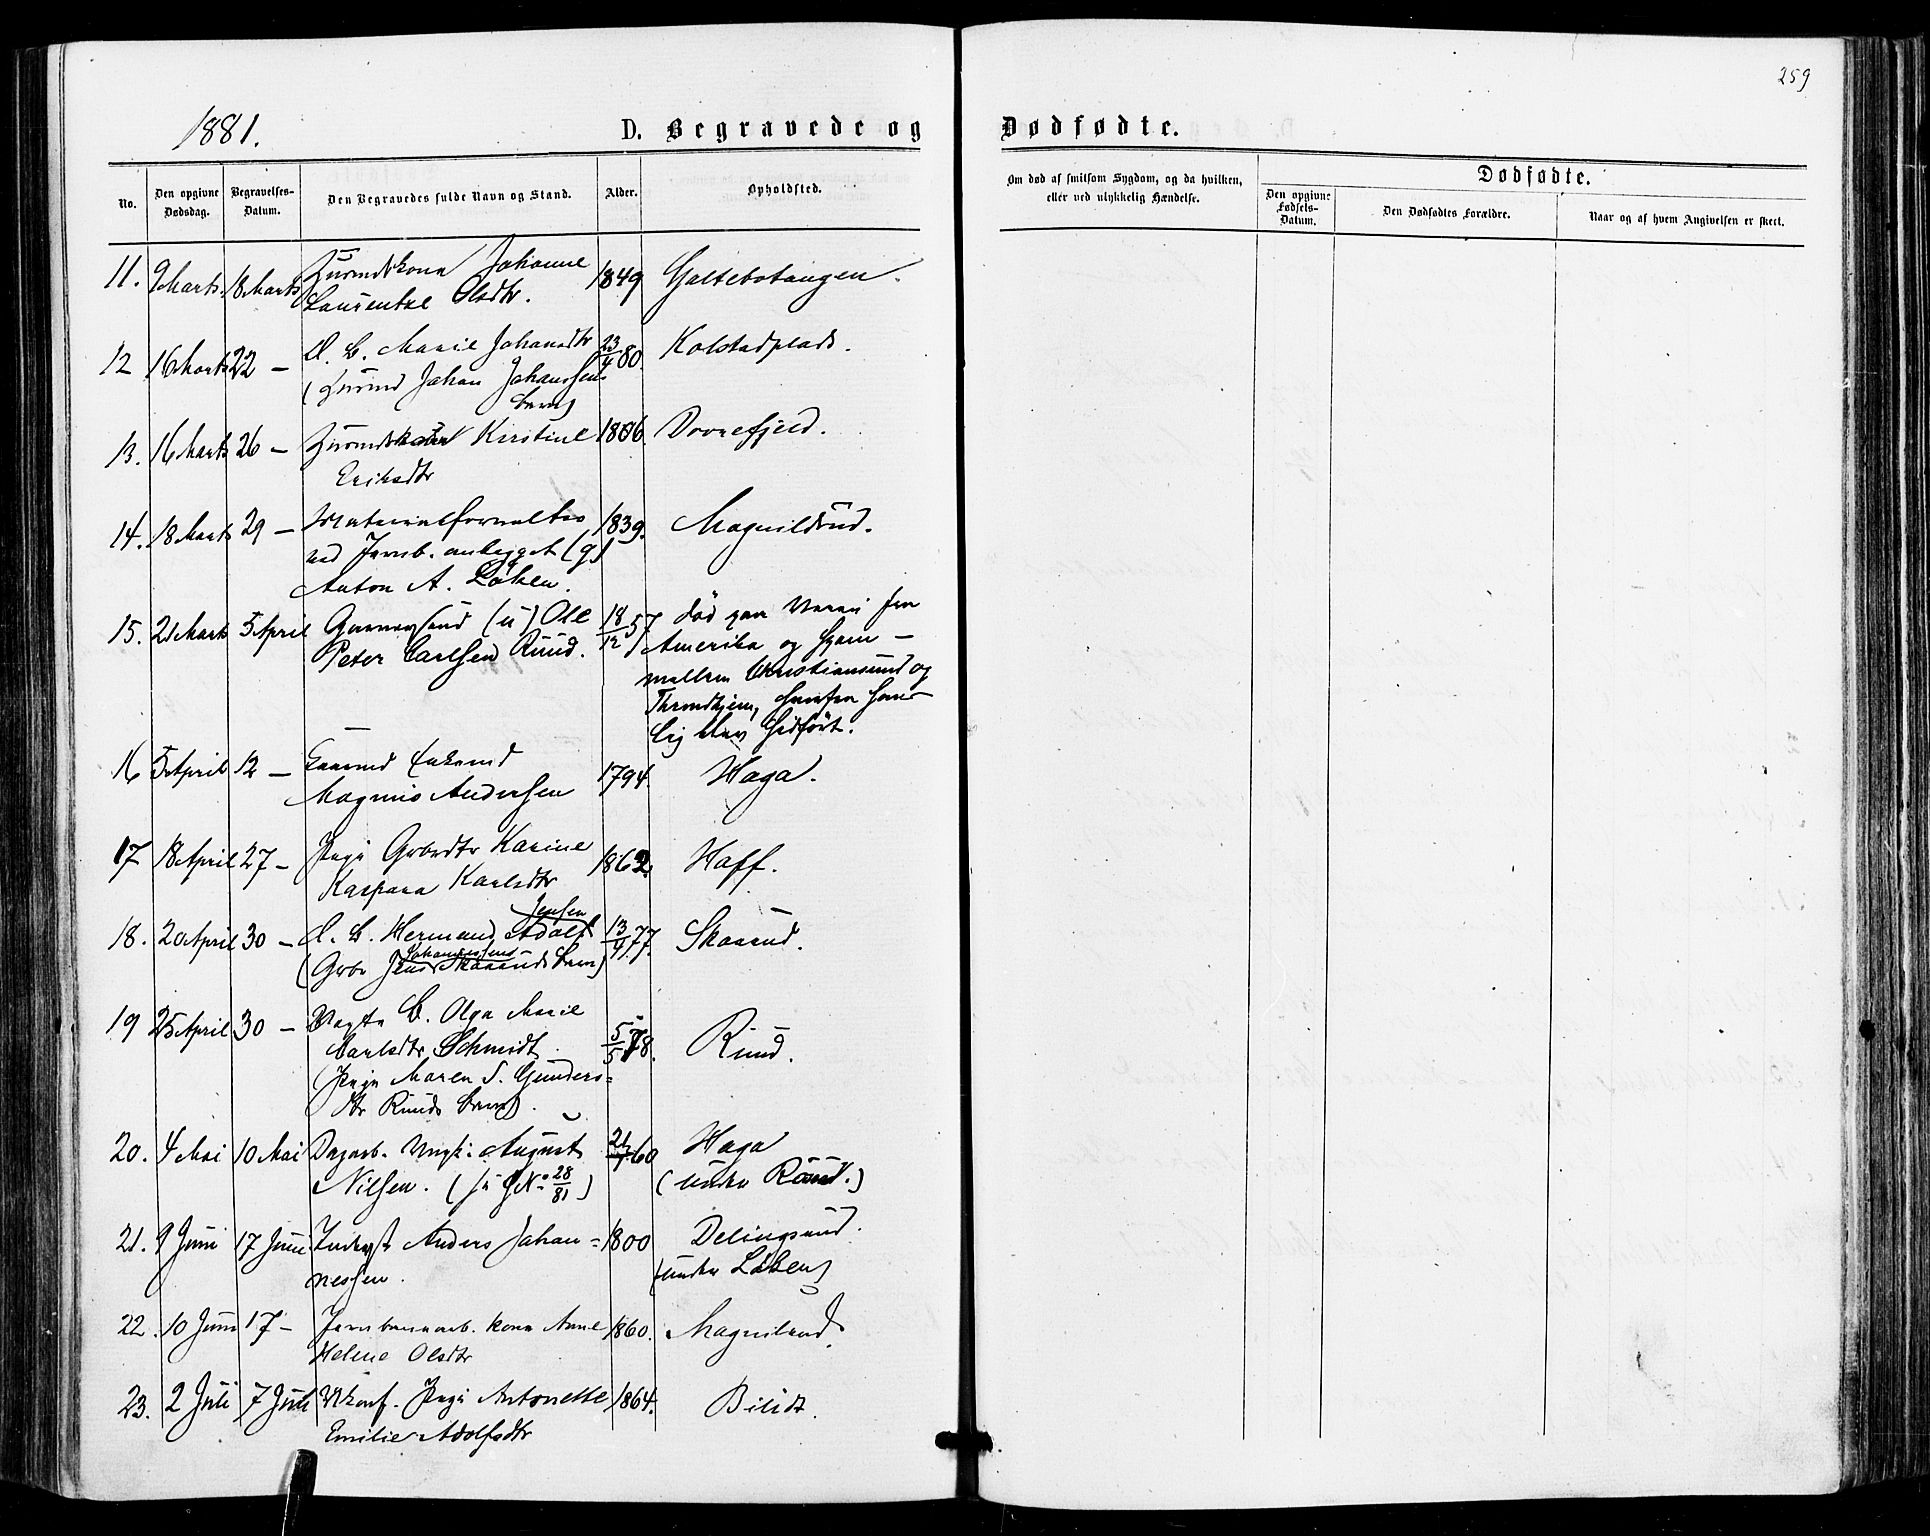 259
1881.
D. Begravede og Dødfødte.
No.
Den opgivne Dødsdag.
Begravelses-Datum.
Den Begravedes fulde Navn og Stand.
Alder.
Opholdsted.
Om død af smitsom Sygdom, og da hvilken,
eller ved ulykkelig Hændelse.
Dødfødte.
Den opgivne Fødsels-Datum.
Den Dødfødtes Forældre.
Naar og af hvem Angivelsen er skeet.
11. 9 Marts. 18 Marts Johanne 1849 Galtebotangen.
Laurentze Olsdtr.
12 16 Marts 22 — Marie Johansdtr 23/4 80. Kolstadplads.
( Johan Johanssens
Barn)
13. 16 Marts 26 — Kirstine 1806. Dovrefjeld.
Eriksdtr
14. 18 Marts 29 — Materialforvalter 1839. Magnildrud.
ved Jernb. anlegget (g)
Anton A. Løken.
15. 21 Marts 5 April (u) Ole 18/12 57 død paa Veien fra
Peter Carlsen Ruud. Amerika og Hjem —
mellem Christiansund og
Throndhjem, hvorfra hans
Lig blev hidført.
16 5 April 12 — 1794. Haga.
Magnus Andersen
17 18 April 27 — Pige Gbrdtr Karine 1862. Haff.
Kaspara Karlsdtr
Jensen
18. 20 April 30 — Hermand Adolf 13/4 77. Skaarud.
Johannessens
(Gbr Jens Skaaruds Barn)
19 25 April 30 — B. Olga Marie 5/5 78. Ruud.
Carlsdtr Schmidt.
(Pige Maren S. Gunders=
dtr Ruuds Barn).
20. 4 Mai 10 Mai Dagarb. Ungk. August 21/7 60 Haga
Nilsen. ( No 28/81 ) (under Ruud.)
21. 9 Juni 17 Juni Anders Johan= 1800 Delingsrud.
nessen. (under Løken)
22. 10 Juni 17 — Jernbanearb. kone Anne 1860. Magnilrud.
Helene Olsdtr
23. 2 Juli 7 Juli Ukonf. Pige Antonette 1864. Bilidt.
Emilie Adolfsdtr